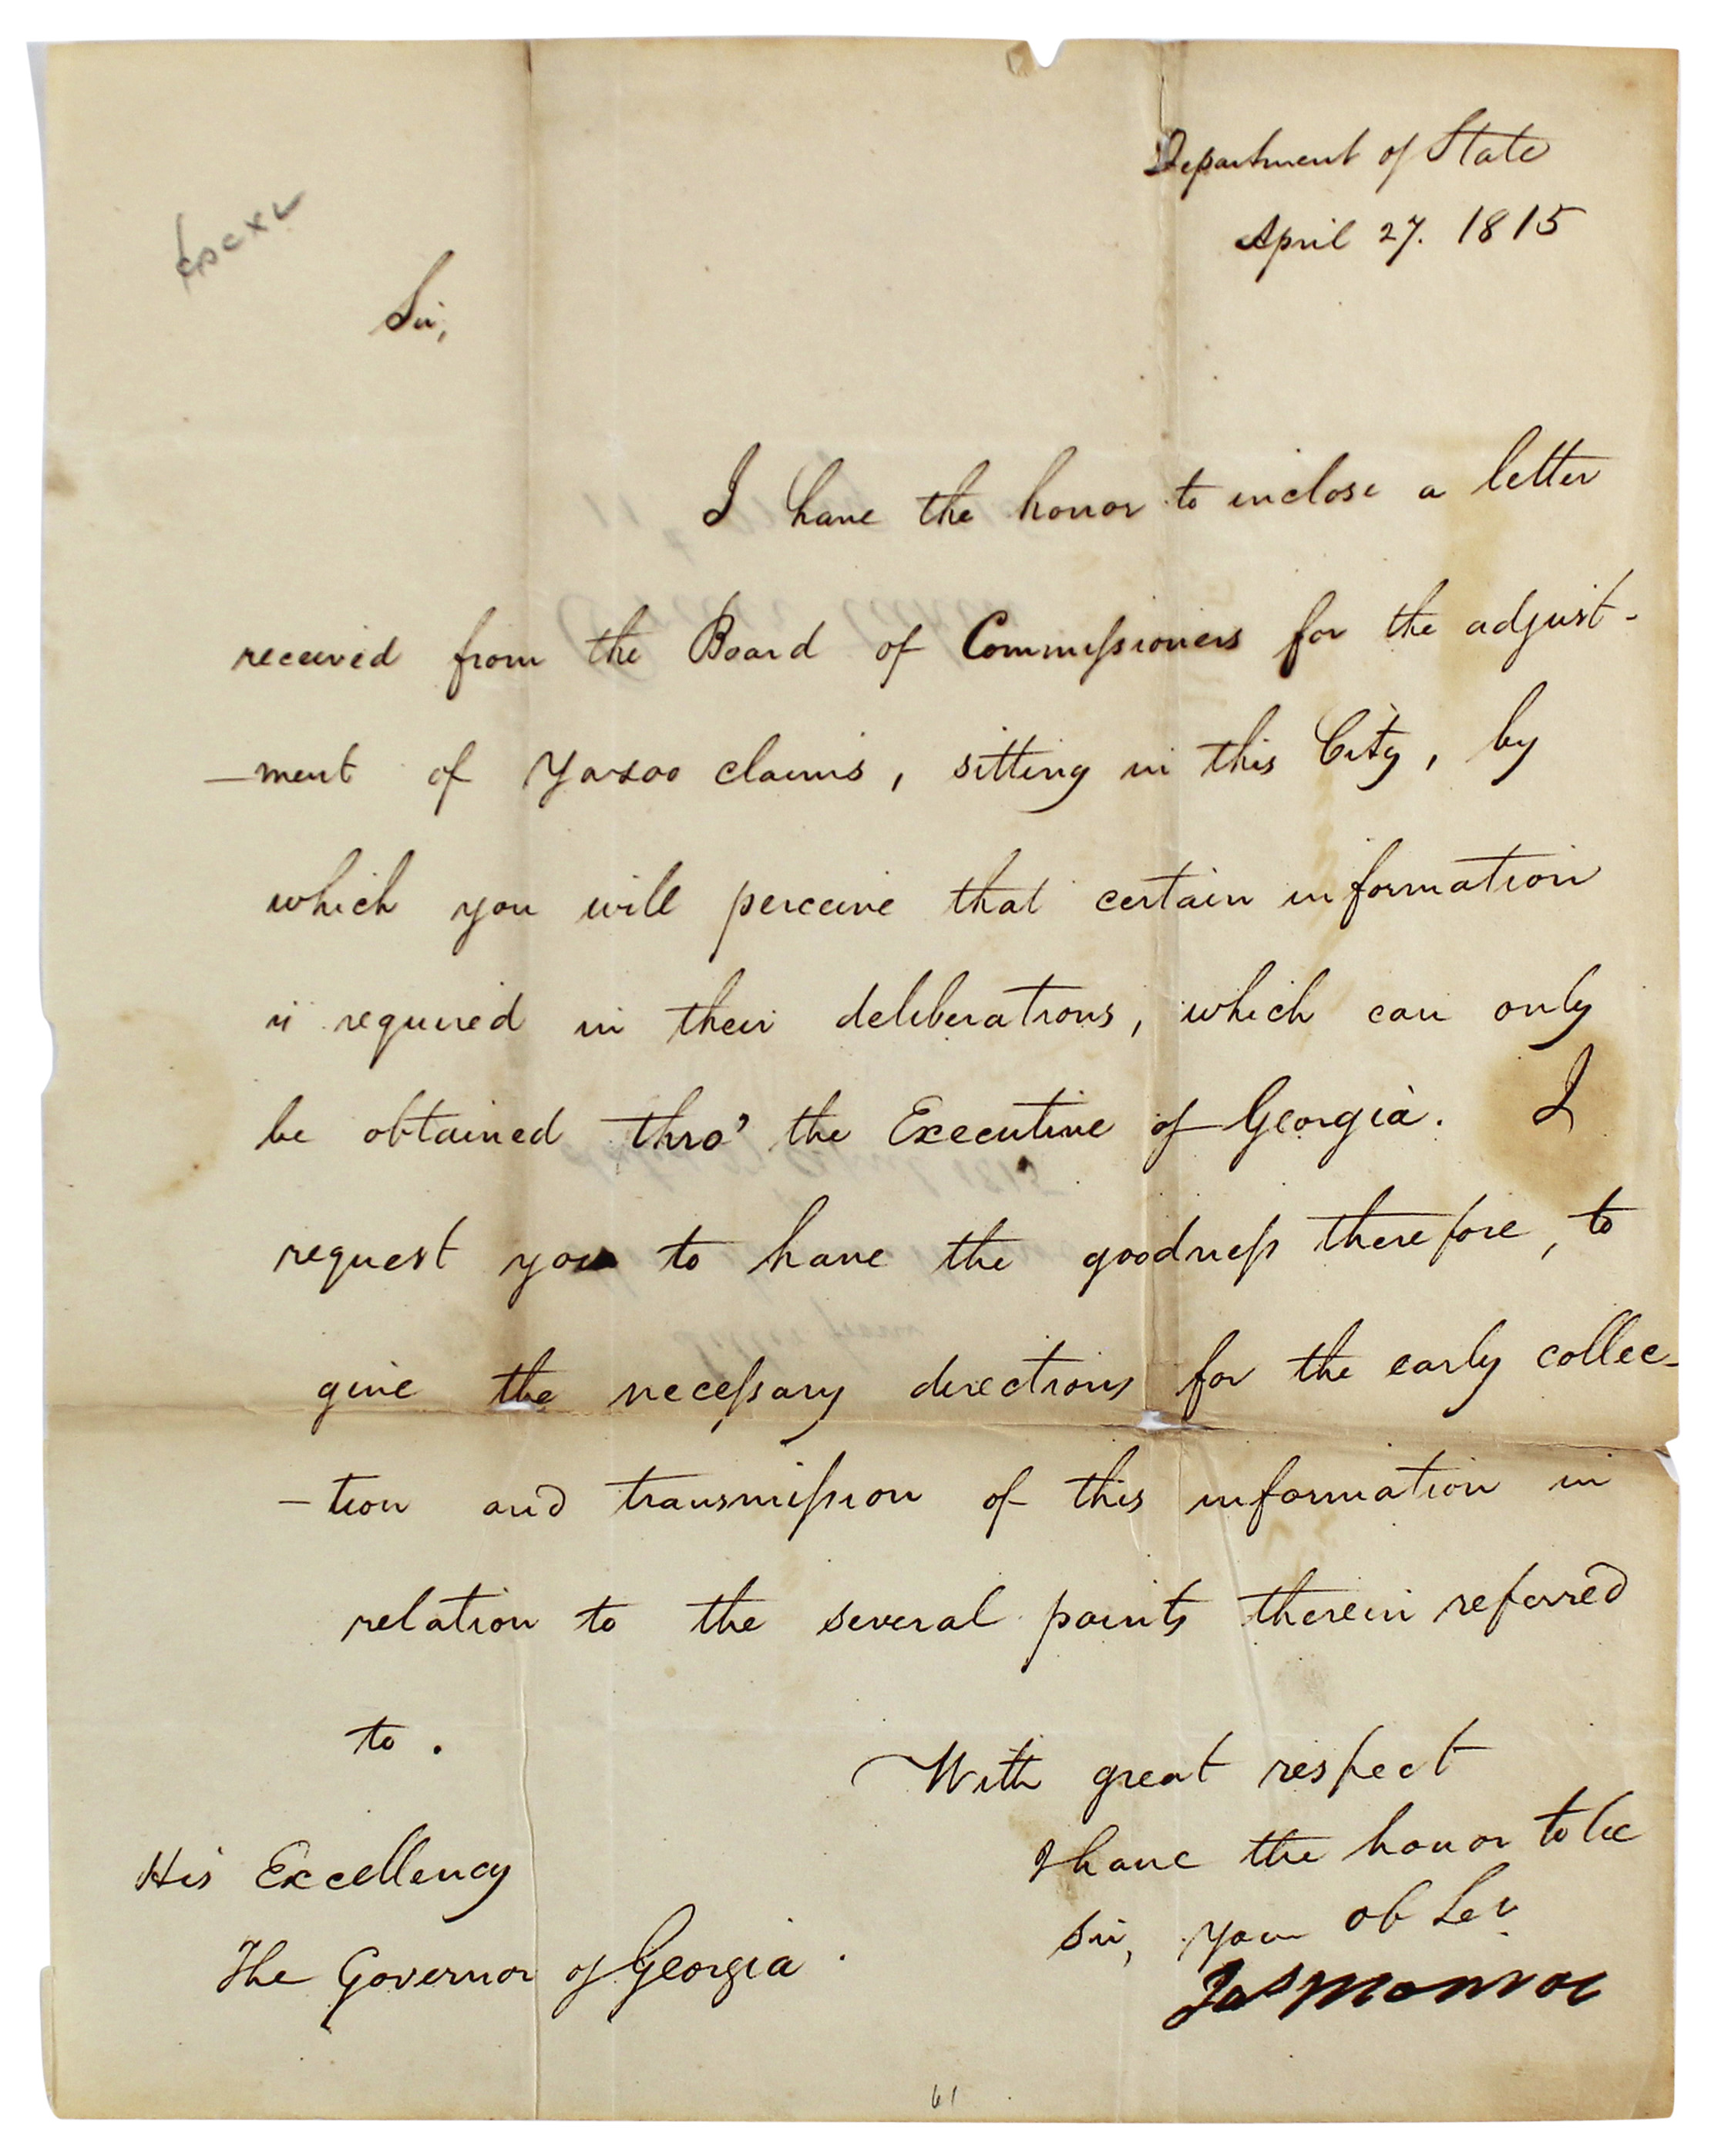 Department of State
April 27. 1815
Sir,
I have the honor to inclose a letter
received from the Board of Commissioners for the adjust-
-ment of Yazoo claims, sitting in this City, by
which you will perceive that certain information
is required in their deliberations, which can only
be obtained thro' the Executive of Georgia. I
request you to have the goodness therefore, to
give the necessary directions for the early collec-
-tion and transmission of this information in
relation to the several points therein referred
to.
With great respect
I have the honor to be
Sir, your ob Ser
Jas Monroe
His Excellency
The Governor of Georgia.
61